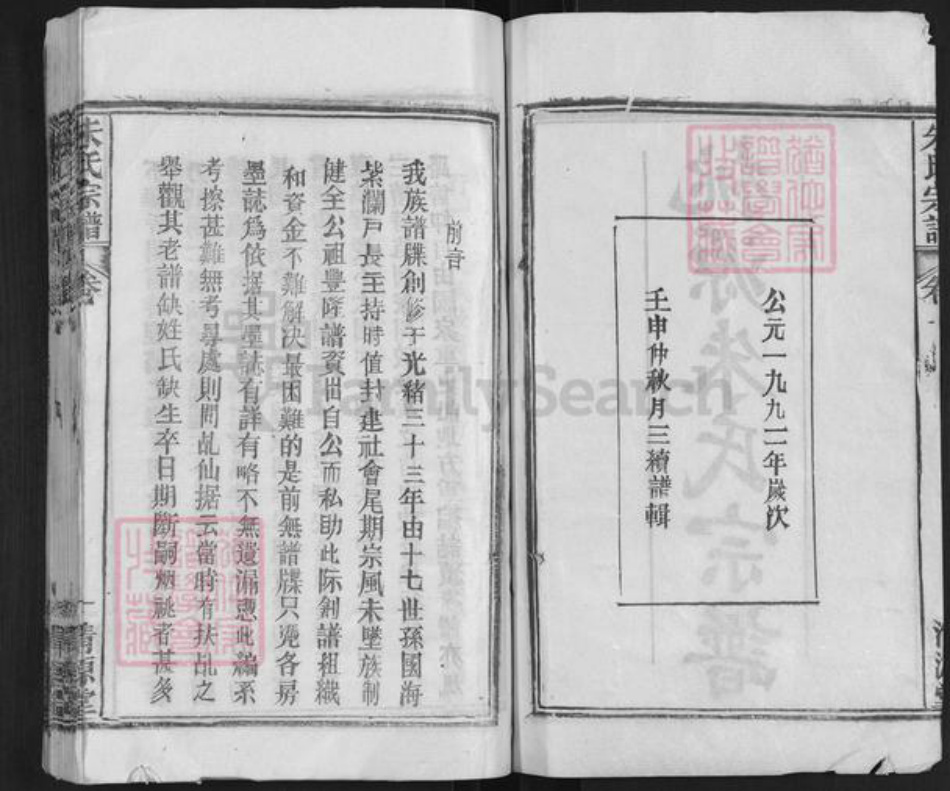 公元一九九二年歲次
壬申仲秋月三續譜輯
朱氏宗譜
卷
前言
我族譜牒創修于光緒三十三年由十七世孫國海
紫瀾戶長主持時值封建社會尾期宗風未墜族制
健全公祖豐隆譜資出自公而私助此际創譜组織
和資金不難解决最困难的是前無譜牒只凴各房
墨誌爲依据其墨誌有詳有略不無遺漏凴此編系
考擦甚難無考尋處則問乩仙据云當時有扶乩之
舉觀其老譜缺姓氏缺生卒日期斷嗣烟祧者甚多
朱氏宗譜
卷
一
清源堂
FamilySearch